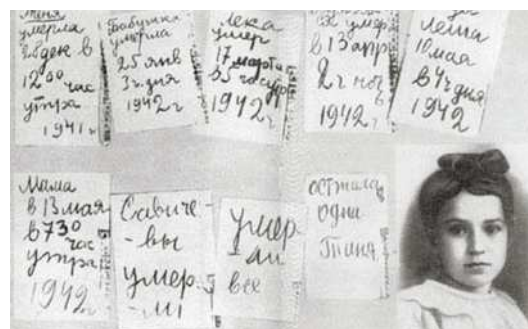 Женя
умерла
28 дек в
12 00 час
утра
1941 г
Бабушка
умерла
25 янв
3 ч. дня
1942 г
Лека
умер
17 марта
в 5 час утр
1942 г
умер
в 13 апр
2 ч ноч
1942 г
Леша
10 мая
в 4 ч дня
1942
Мама
в 13 мая
в 7 30
час
утра
1942 г
Савиче-
-вы
умер-
-ли
умер
-ли
все
осталась
одна
Таня